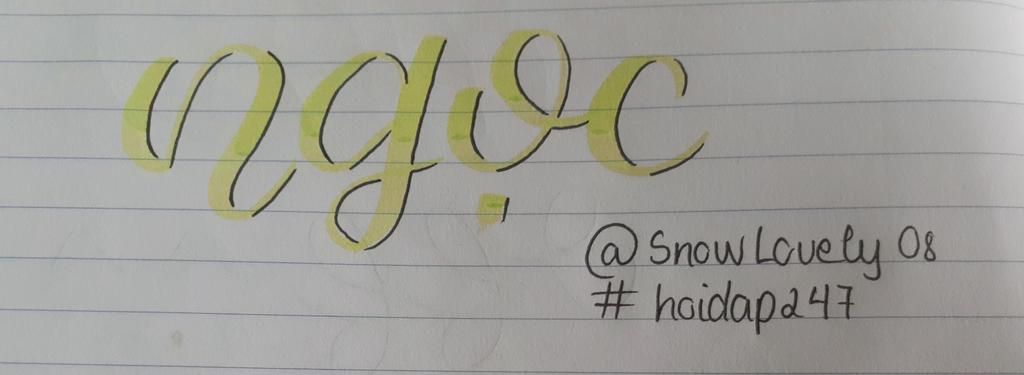 ngọc
@SnowLovely08
#hoidap247